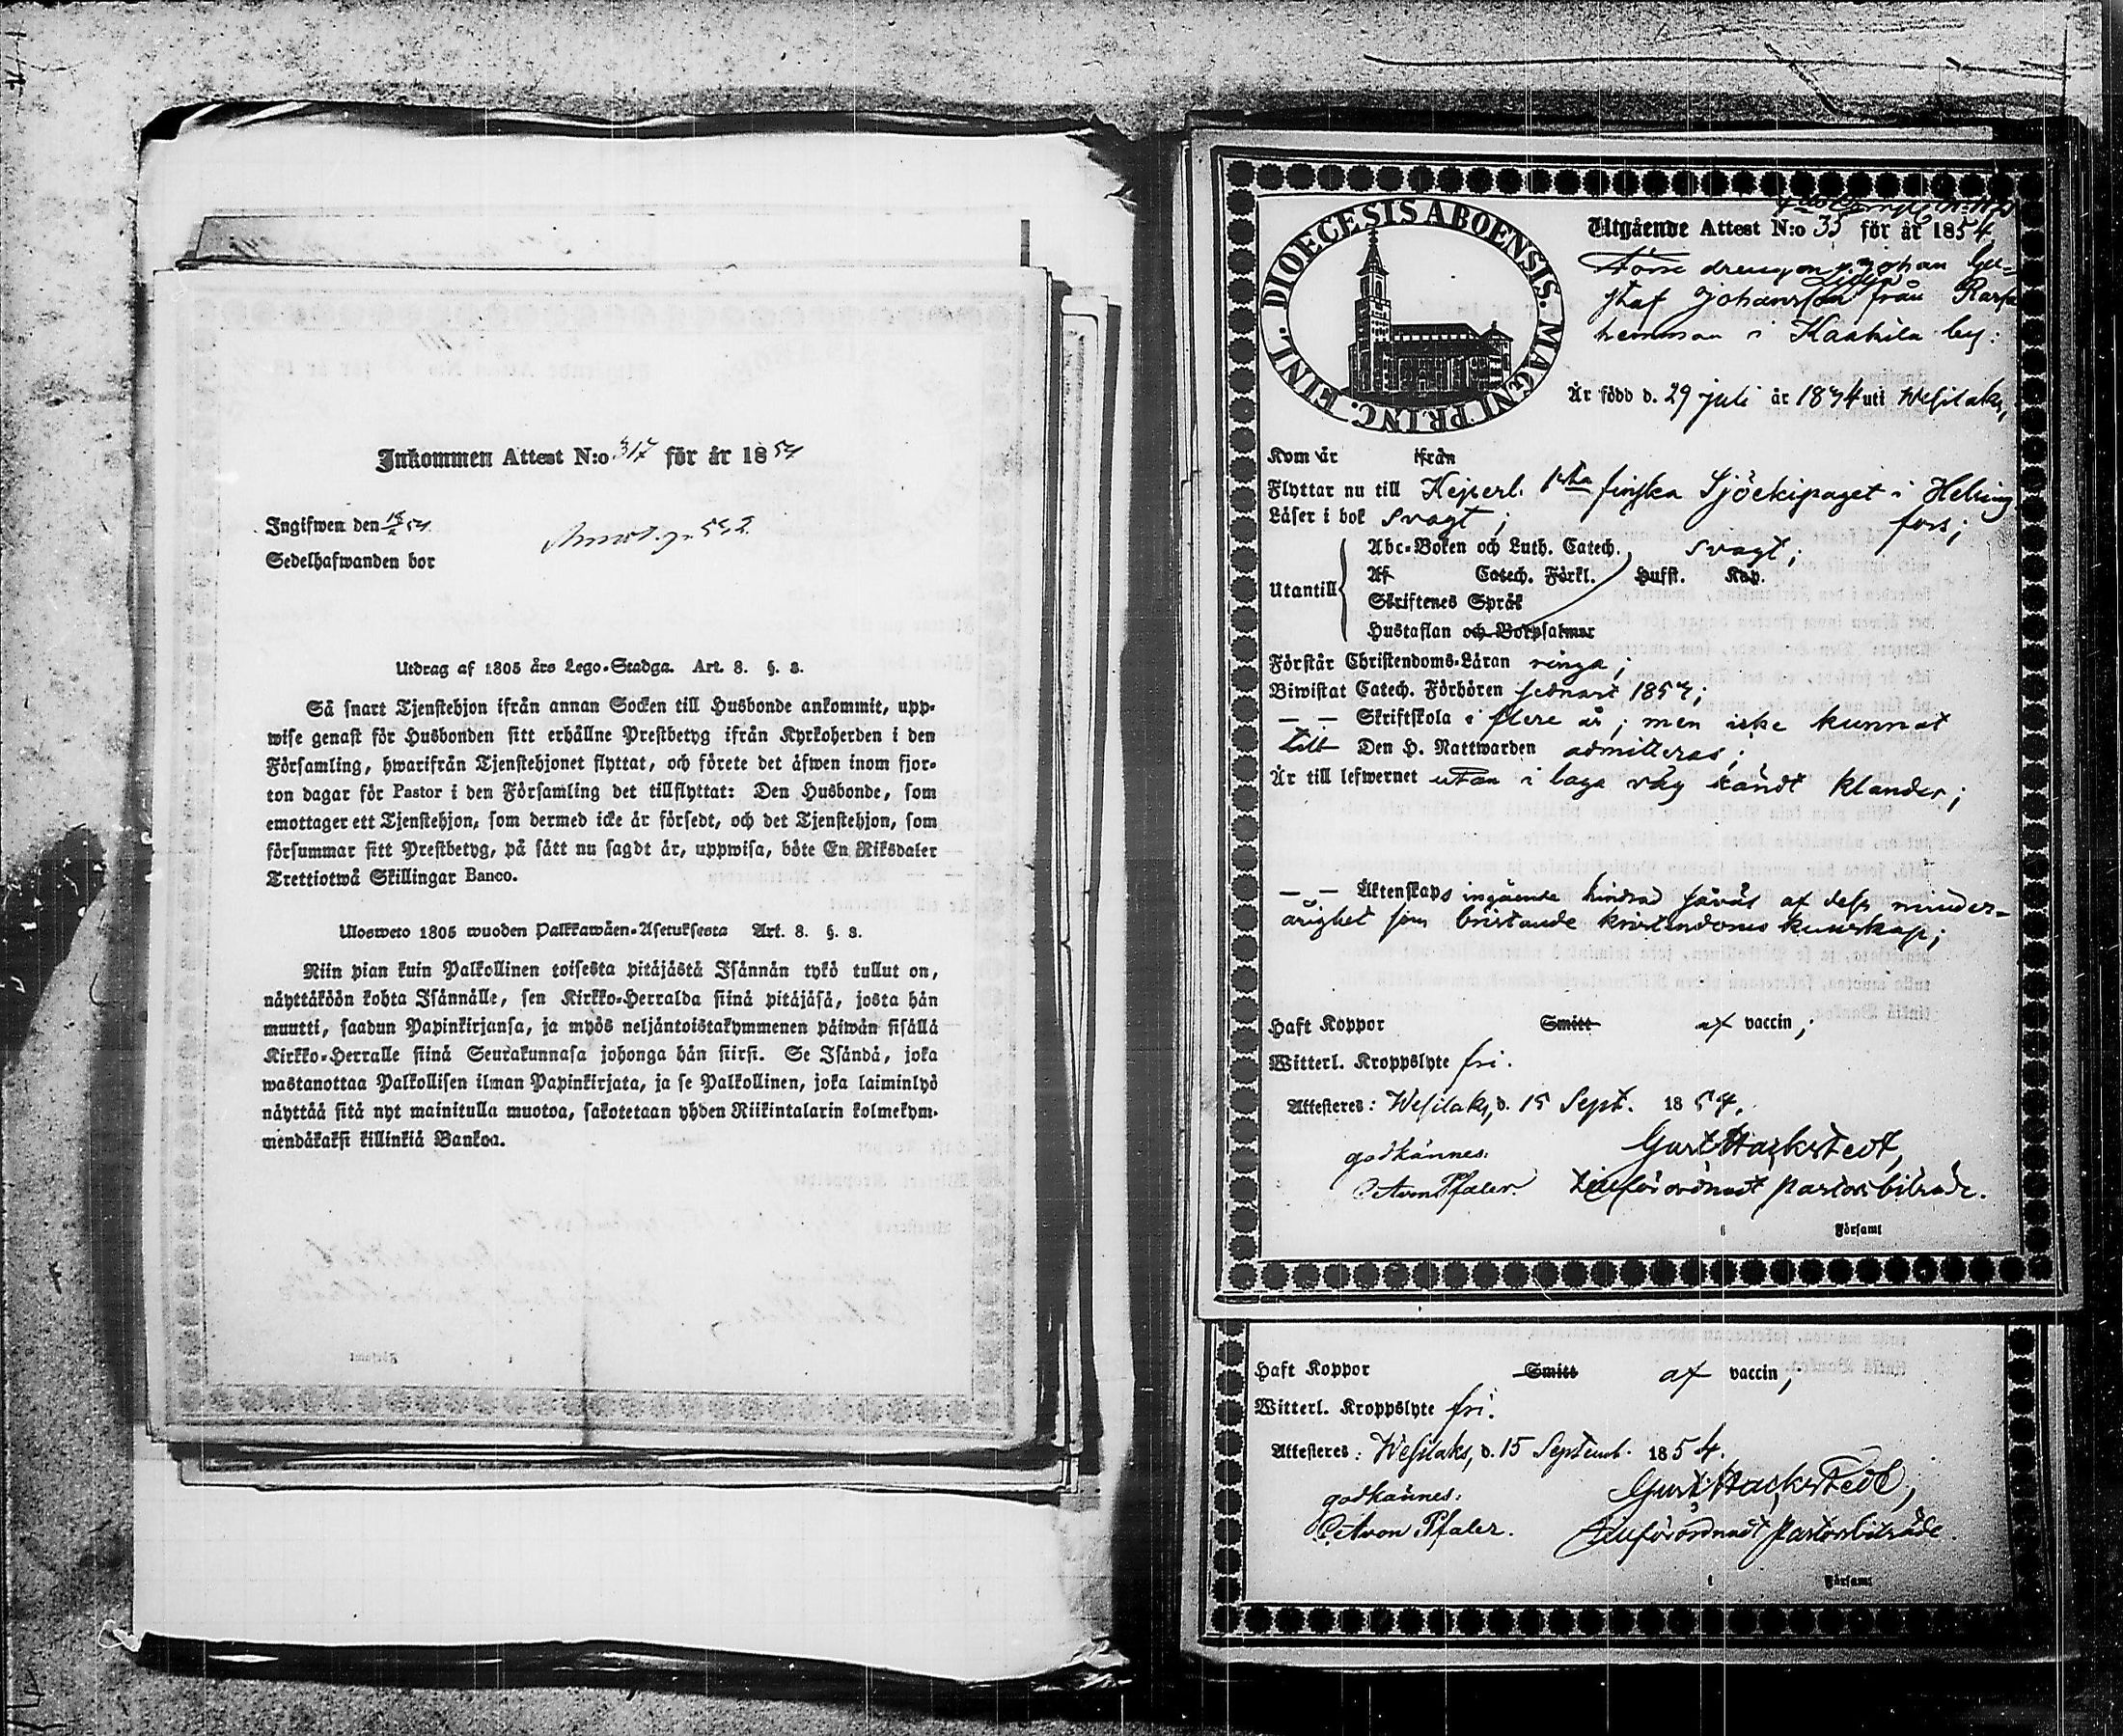 Inkommen Attest N:o 317 för år 1854
Ingifwen den 18/ 54
Sedelhafwanden bor
552
Utdrag af 1805 års Lego-Stadga. Art. 8. §. 8.
Så snart Tjenstehjon ifrån annan Socken till Husbonde ankommit, upp-
wise genast för Husbonden sitt erhållne Prestbetyg ifrån Kyrkoherden i den
Församling, hwarifrån Tjenstehjonet flyttat, och förete det äfwen inom fjor-
ton dagar för Pastor i den Församling det tillflyttat: Den Husbonde, som
emottager ett Tjenstehjon, som dermed icke är försedt, och det Tjenstehjon, som
försummar sitt Prestbetyg, på sätt nu sagdt är, uppwisa, böte En Riksdaler
Trettiotwå Skillingar Banco.
Ulosweto 1805 wuoden Palkkawäen-Asetuksesta Art. 8. §. 8.
Niin pian kuin Palkollinen toisesta pitäjästä Isännän tykö tullut on,
näyttäköön kohta Isännälle, sen Kirkko-Herralda siinä pitäjäsä, josta hän
muutti, saadun Papinkirjansa, ja myös neljäntoistakymmenen päiwän sisällä
Kirkko-Herralle siinä Seurakunnasa johonga hän siirsi. Se Isändä, joka
wastanottaa Palkollisen ilman Papinkirjata, ja se Palkollinen, joka laiminlyö
näyttää sitä nyt mainitulla muotoa, sakotetaan yhden Riikintalarin kolmekym-
mendäkaksi killinkiä Bankoa.
DIOECESIS ABOENSIS. MAGNI PRINC. FINL.
Utgående Attest N:o 35 för år 1854.
drengen Johan Gu-
staf Johansson från
hemman i Kaakila by:
Är född d. 29 juli år 1834 uti Wesilaks,
Kom år ifrån
Flyttar nu till Kejserl. 1sta finska Sjöekipaget i Helsing
fors;
Läser i bok svagt;
Abc-Boken och Luth. Catech. svagt;
Utantill Af Catech. Förkl. Husst. Kap.
Skriftenes Språk
Hustaflan och Botpsalmer
Förstår Christendoms-Läran ringa;
Biwistat Catech. Förhören sednast 1854;
— — Skriftskola i flere år; men icke kunnat
till Den H. Nattwarden admitteras;
Är till lefwernet utan i laga väg kändt klander;
— — Äktenskaps ingående hindrad såväl af dess minder-
årighet som bristande kristendoms kunskap;
Haft Koppor Smitt af vaccin;
Witterl. Kroppslyte fri.
Attesteres: Wesilaks, d. 15 Sept. 1854.
godkännes: Gust Hackstedt,
von Pfaler. pastorsbiträde.
i Församl
Haft Koppor Smitt af vaccin;
Witterl. Kroppslyte fri.
Attesteres: Wesilaks, d. 15 Septemb. 1854.
godkännes: Gust Hackstedt,
von Pfaler. pastorsbiträde.
i Församl